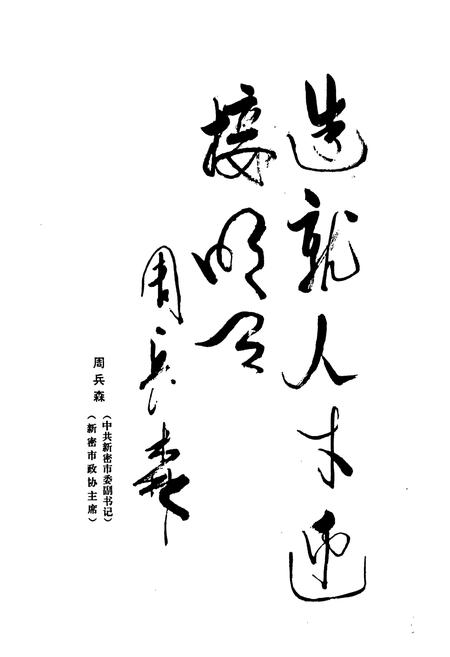 造就人才迎
接明天
周兵森
周兵森
（中共新密市委副书记）
（新密市政协主席）